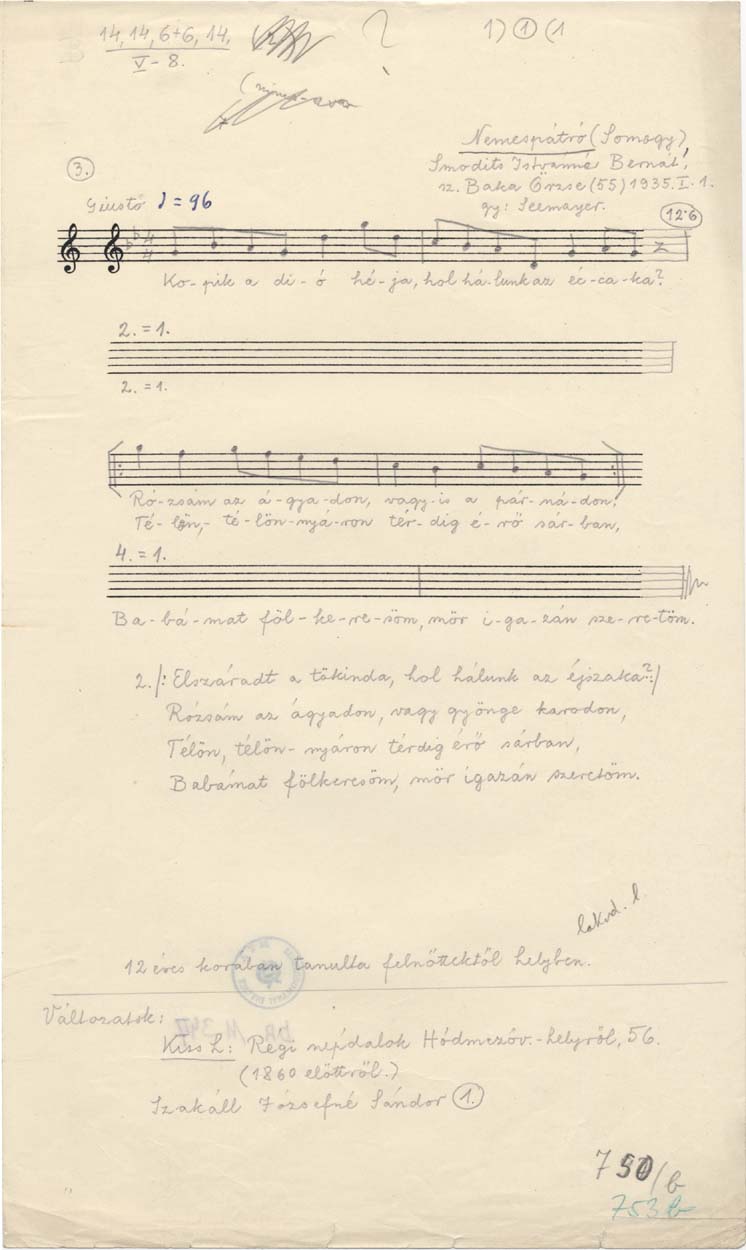 14, 14, 6+6, 14. ? 1) ① (1
V - 8.
Nemespátró (Somogy)
3. Smodits Istvánné Bernát,
sz. Baka Örzse (55) 1935. I. 1.
gy: Seemayer.
Giusto ♩ = 96 12·6
4
4
Ko-pik a di-ó hé-ja, hol há-lunk az éc-ca-ka?
2. = 1.
2. = 1.
Ró-zsám az á-gya-don, vagy-is a pár-ná-don,
Té-lön,- té-lön-nyá-ron tér-dig é-rő sár-ban,
4. = 1.
Ba-bá-mat föl-ke-re-söm, mör i-ga-zán sze-re-töm.
2. /: Elszáradt a tökinda, hol hálunk az éjszaka? :/
Rózsám az ágyadon, vagy gyönge karodon,
Télön, télön-nyáron térdig érő sárban,
Babámat fölkeresöm, mör igazán szeretöm.
lakod. l.
12 éves korában tanulta felnőttektől helyben.
Változatok:
Kiss L: Régi népdalok Hódmezőv.-helyről, 56.
(1860 előttről.)
Szakáll Józsefné Sándor 1.
750/b
753 b